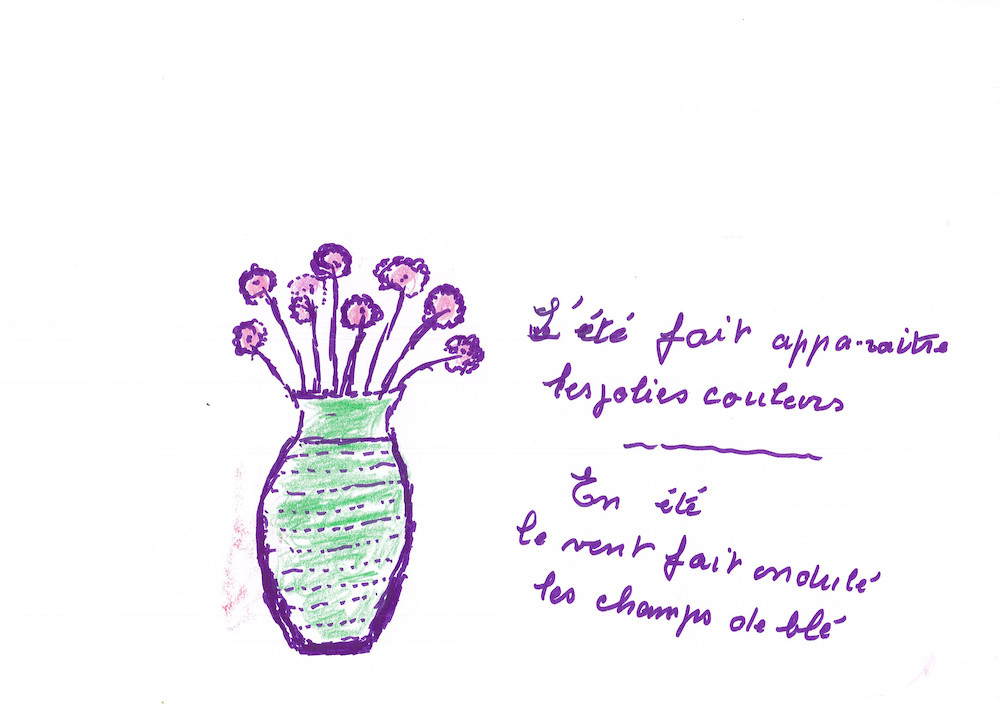 L'été fait appa-raître
les jolies couleurs
En été
le vent fait ondulé
les champs de blé